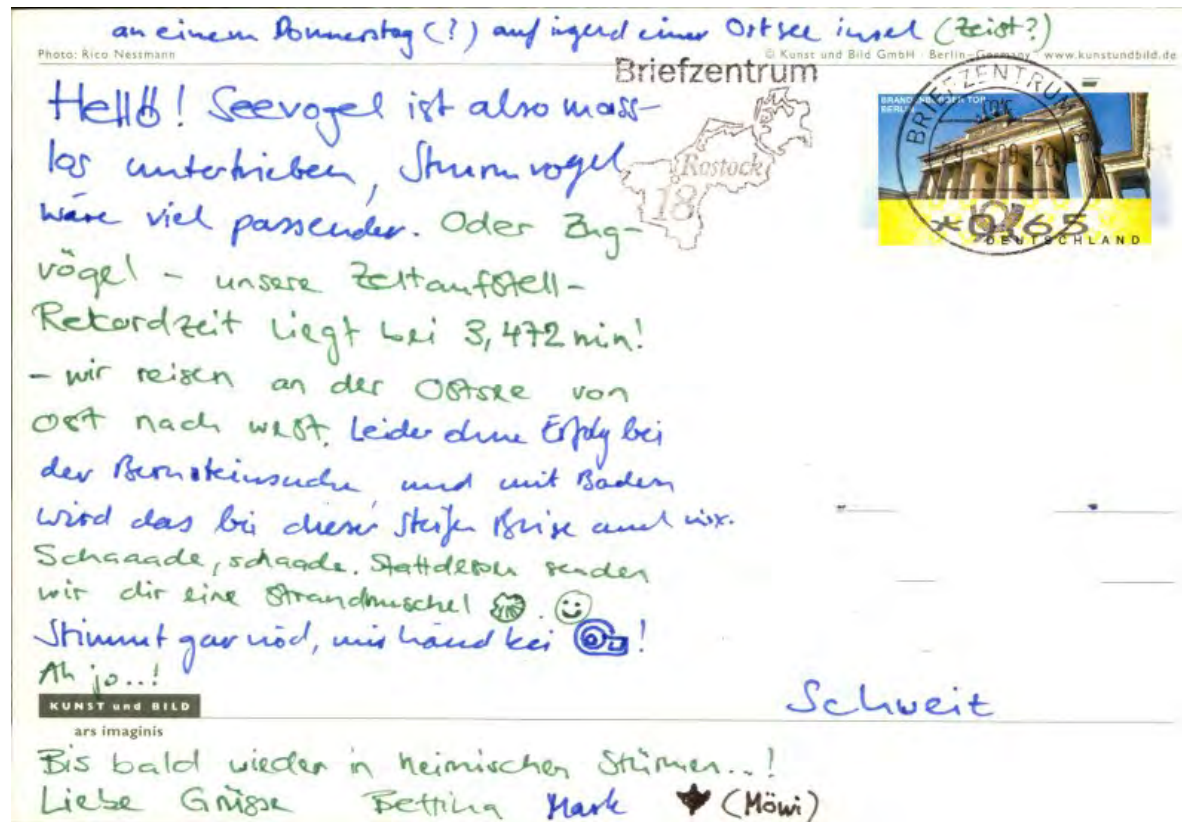 an einem Donnerstag (?) auf irgend einer Ostsee insel (Zeist?)
Photo: Rico Nessmann
© Kunst und Bild GmbH · Berlin-Germany · www.kunstundbild.de
Briefzentrum
Rostock
18
BRIEFZENTRUM
BRANDENBURGER TOR
BERLIN
*0,65
DEUTSCHLAND
Hellö! Seevogel ist also mass-
los untertrieben, Sturmvogel
wäre viel passender. Oder Zug-
vögel - unsere Zeltaufstell-
Rekordzeit liegt bei 3,472 min!
- wir reisen an der Ostsee von
Ost nach West. Leider ohne Erfolg bei
der Bernsteinsuche, und mit Baden
wird das bei dieser steifen Brise auch nix.
Schaaade, schaade. Stattdessen senden
wir dir eine Strandmuschel
Stimmt gar nöd, mir händ kei !
Ah jo..!
KUNST und BILD
ars imaginis
Schweiz
Bis bald wieder in heimischen Stürmen...!
Liebe Grüsse Bettina Mark (Möwi)